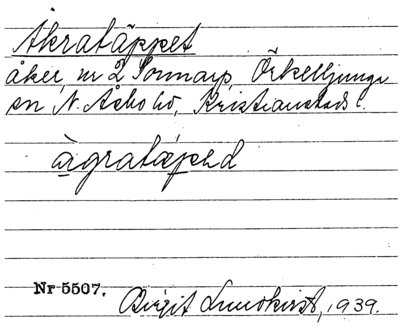 Åkratäppet
åker, nr 2 Sonnarp, Örkelljunga
sn N. Åsbo hd, Kristianstads l.
àgratǽpəd
Nr 5507.
Birgit Lundkvist, 1939.